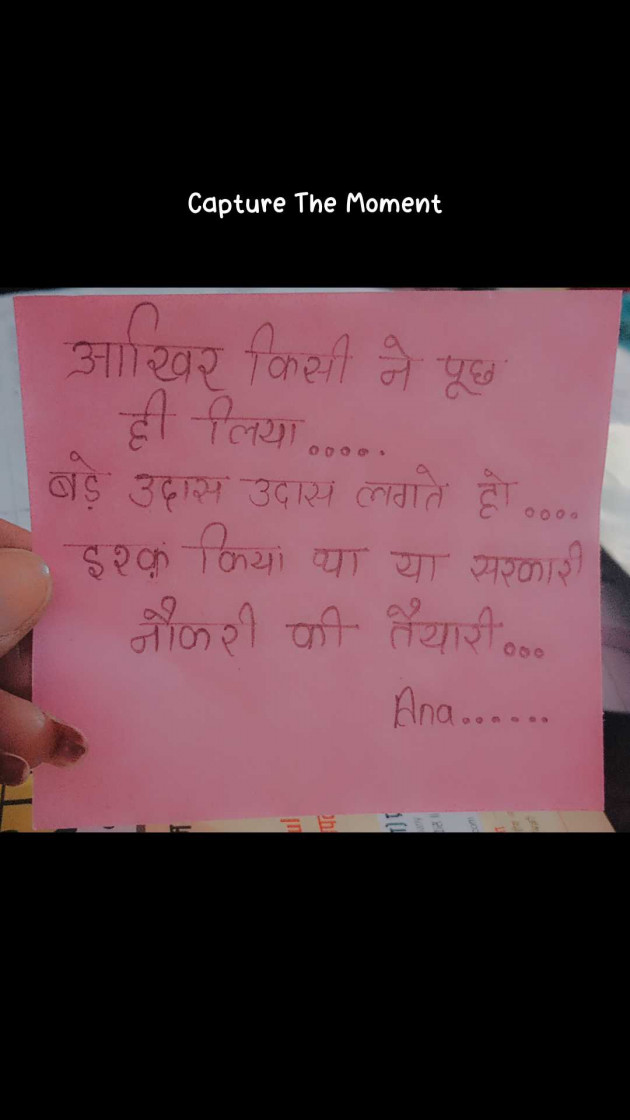 Capture The Moment
आखिर किसी ने पूछ
ही लिया.....
बड़े उदास उदास लगते हो....
इश्क़ किया था या सरकारी
नौकरी की तैयारी...
Ana......